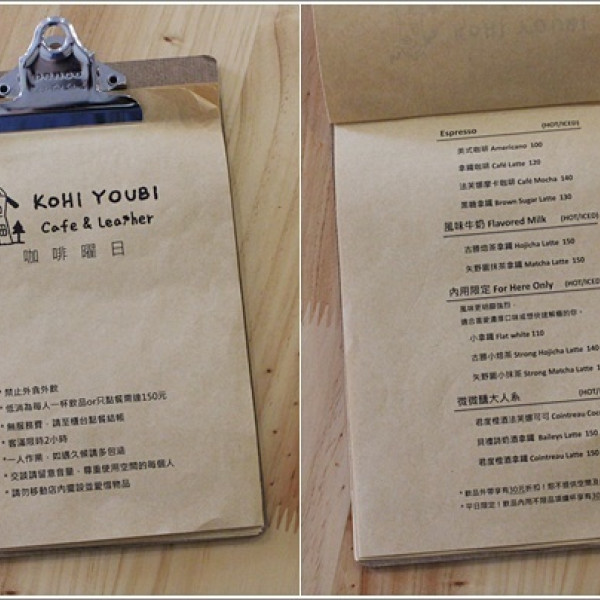 KOHI YOUBI
Cafe & Leather
咖啡曜日
* 禁止外食外飲
* 低消為每人一杯飲品or只點餐需達150元
* 無服務費，請至櫃台點餐結帳
* 客滿限時2小時
* 一人作業，如遇久候請多包涵
* 交談請留意音量，尊重使用空間的每個人
* 請勿移動店內擺設並愛惜物品
Espresso (HOT/ICED)
美式咖啡 Americano 100
拿鐵咖啡 Café Latte 120
法芙娜摩卡咖啡 Café Mocha 140
黑糖拿鐵 Brown Sugar Latte 130
風味牛奶 Flavored Milk (HOT/ICED)
古勝焙茶拿鐵 Hojicha Latte 150
矢野園抹茶拿鐵 Matcha Latte 150
內用限定 For Here Only (HOT/ICE
風味更明顯強烈，
適合喜愛濃厚口味或想快速解癮的你。
小拿鐵 Flat white 110
古勝小焙茶 Strong Hojicha Latte 140
矢野園小抹茶 Strong Matcha Latte
微微醺大人系 (HOT/
君度橙酒法芙娜可可 Cointreau Coco
貝禮詩奶酒拿鐵 Baileys Latte 150
君度橙酒拿鐵 Cointreau Latte 150
* 飲品外帶享有30元折扣！恕不提供空間及
* 平日限定！飲品內用不限品項續杯享有30